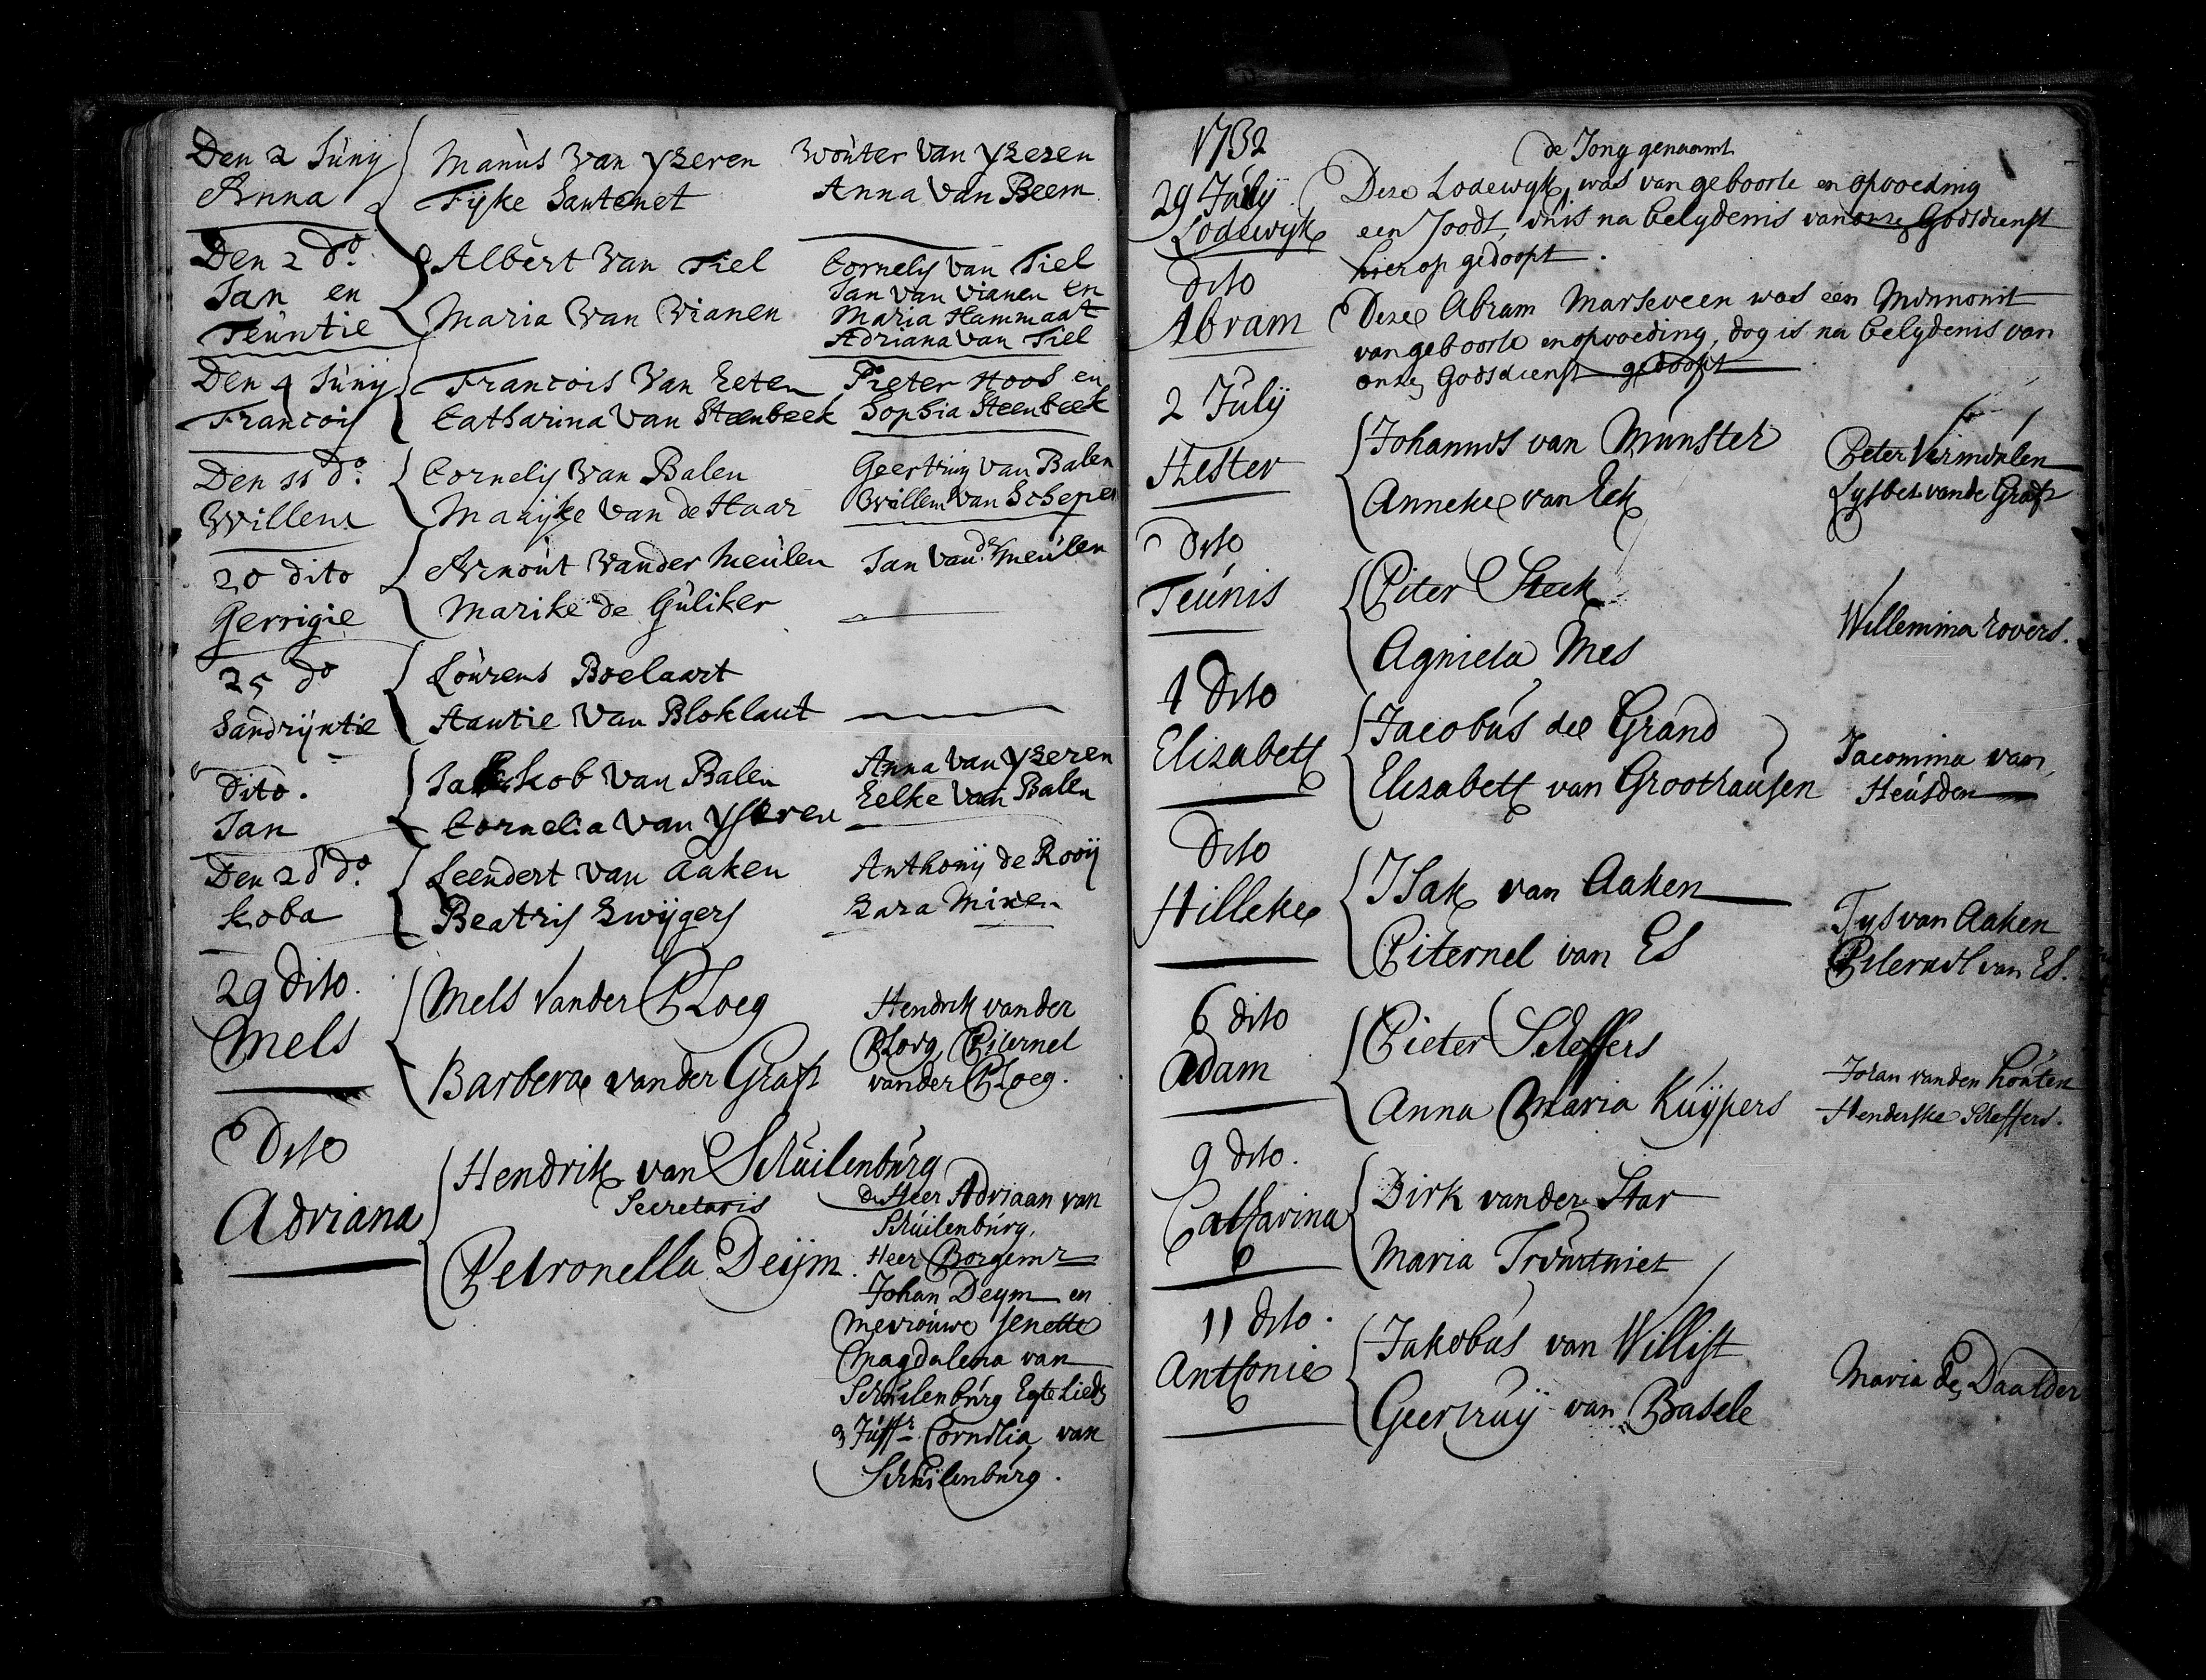 Den 2 Juny
Anna
Manus Van Yzeren
Fijke Santenet
Wouter Van Yzezen
Anna Van Beem
Den 2 do.
Jan en
Teuntie
Albert Van Tiel
Maria Van Vianen
Cornely van Tiel
Jan van vianen en
Maria Hammaat
Adriana Van Tiel
Den 4 Juny
Francois
Francois Van Eeten
Catharina Van Steenbeek
Pieter Hoos en
Sophia Steenbeek
Den 11 do.
Willem
Cornely Van Balen
Maaijke Van de Haar
Geertruy Van Balen
Willem Van Schepe
20 dito
Gerrigie
Arnout Vander Meulen
Marike de Guliker
Jan Van der Meulen
25 do
Sandrijntie
Lourens Boelaart
Stantie Van Bloklant
Dito.
Jan
Jakob Van Balen
Cornelia Van Ysseren
Anna Van Yzeren
Eelke Van Balen
Den 28 do.
Koba
Leendert Van Aaken
Beatris Zwijgers
Anthonij de Rooij
Zara Mixen
29 dito.
Mels
Mels Vander Ploeg
Barbera vander Graft
Hendrik vander
Ploeg, Piternel
vander Ploeg.
Dito
Adriana
Hendrik van Schuilenburg
Secretaris
Petronella Deijm.
de Heer Adriaan van
Schuilenburg,
Heer Borgemr
Johan Deym en
Mevrouwe Jenette
Magdalena van
Schuilenburg Egte Lieds
& Juffr. Cornelia van
Schuilenburg.
1732
29 July
Lodewyk
de Jong genaamt
Deze Lodewyk, was van geboorte en opvoeding
een Joodt, dnis na belydenis van onze Godsdienst
hier op gedoopt.
dito
Abram
Deze Abram Marseveen was een Mennonit
van geboorte en opvoeding, dog is na belydenis van
onze Godsdienst gedoopt
2 July
Hester
Johannes van Munster
Anneke van Eck
Peter Vermeulen
Lysbet vande Graft
Dito
Teunis
Piter Steck
Agnieta Mes
Willemina rovers.
4 Dito
Elizabeth
Jacobus de Grand
Elizabeth van Groothausen
Jacomina van
Heusden
Dito
Hilleke
Isak van Aaken
Piternel van Es
Tys van Aaken
Piternel van Es.
6 dito
Adam
Pieter Scheffers
Anna Maria Kuijpers
Johan vanden houten
Henderske Scheffers.
9 dito.
Catharina
Dirk vander Star
Maria Trountniet
11 dito.
Anthonie
Jakobus van Willist
Geertruij van Basele
Maria de Daalder